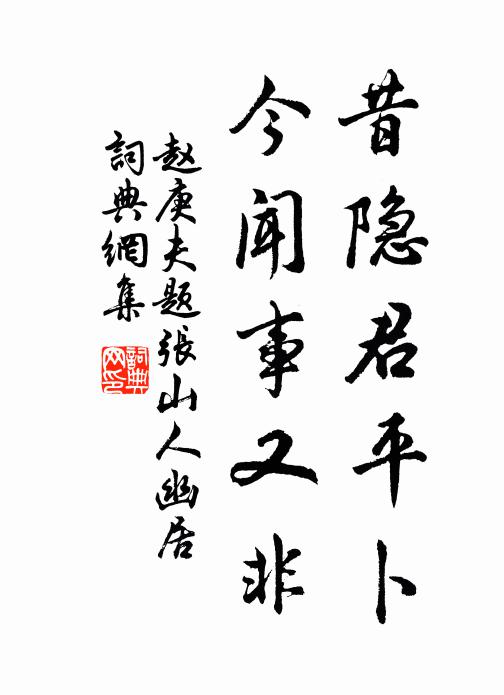 昔隐君平卜
今闻事又非
赵庚夫题張山人幽居
詞典網集
詞典网印